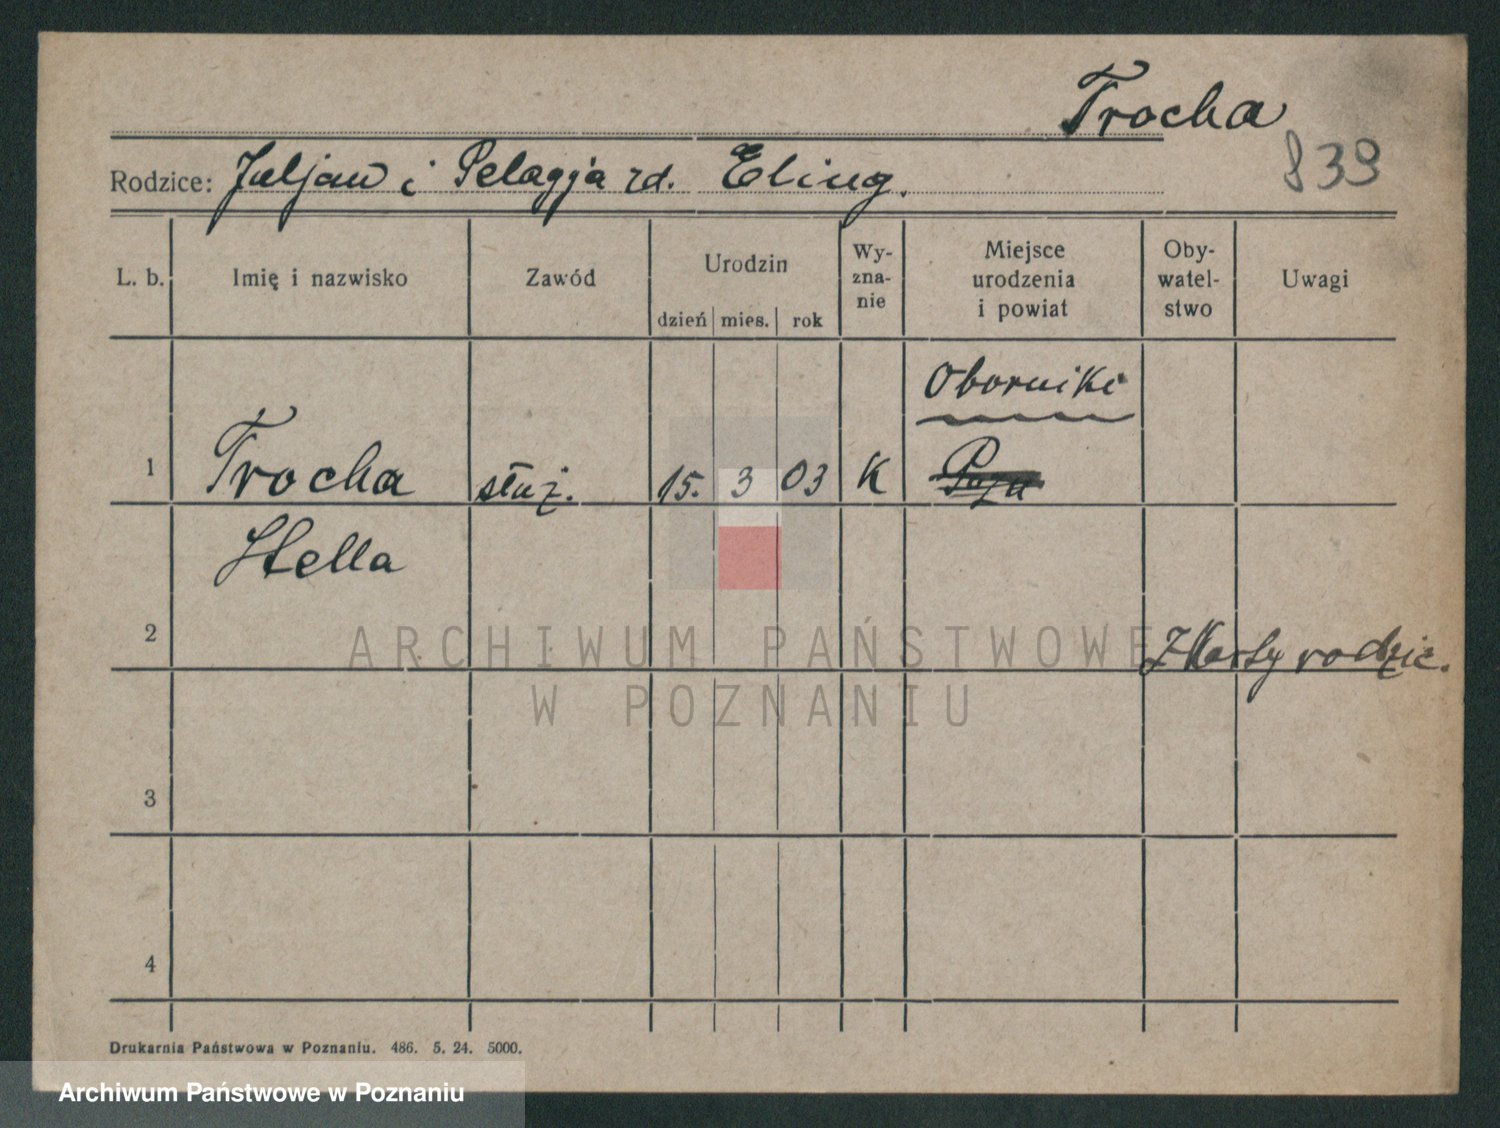 Trocha
Rodzice: Juljan i Pelagja zd. Eling.
839
L. b. Imię i nazwisko Zawód Urodzin dzień mies. rok Wy-zna-nie Miejsce urodzenia i powiat Oby-watel-stwo Uwagi
Oborniki
1 Trocha służ. 15. 3 03 K Pozn
Stella
2 Z Karty rodzic.
ARCHIWUM PAŃSTWOWE
W POZNANIU
3
4
Drukarnia Państwowa w Poznaniu. 486. 5. 24. 5000.
Archiwum Państwowe w Poznaniu